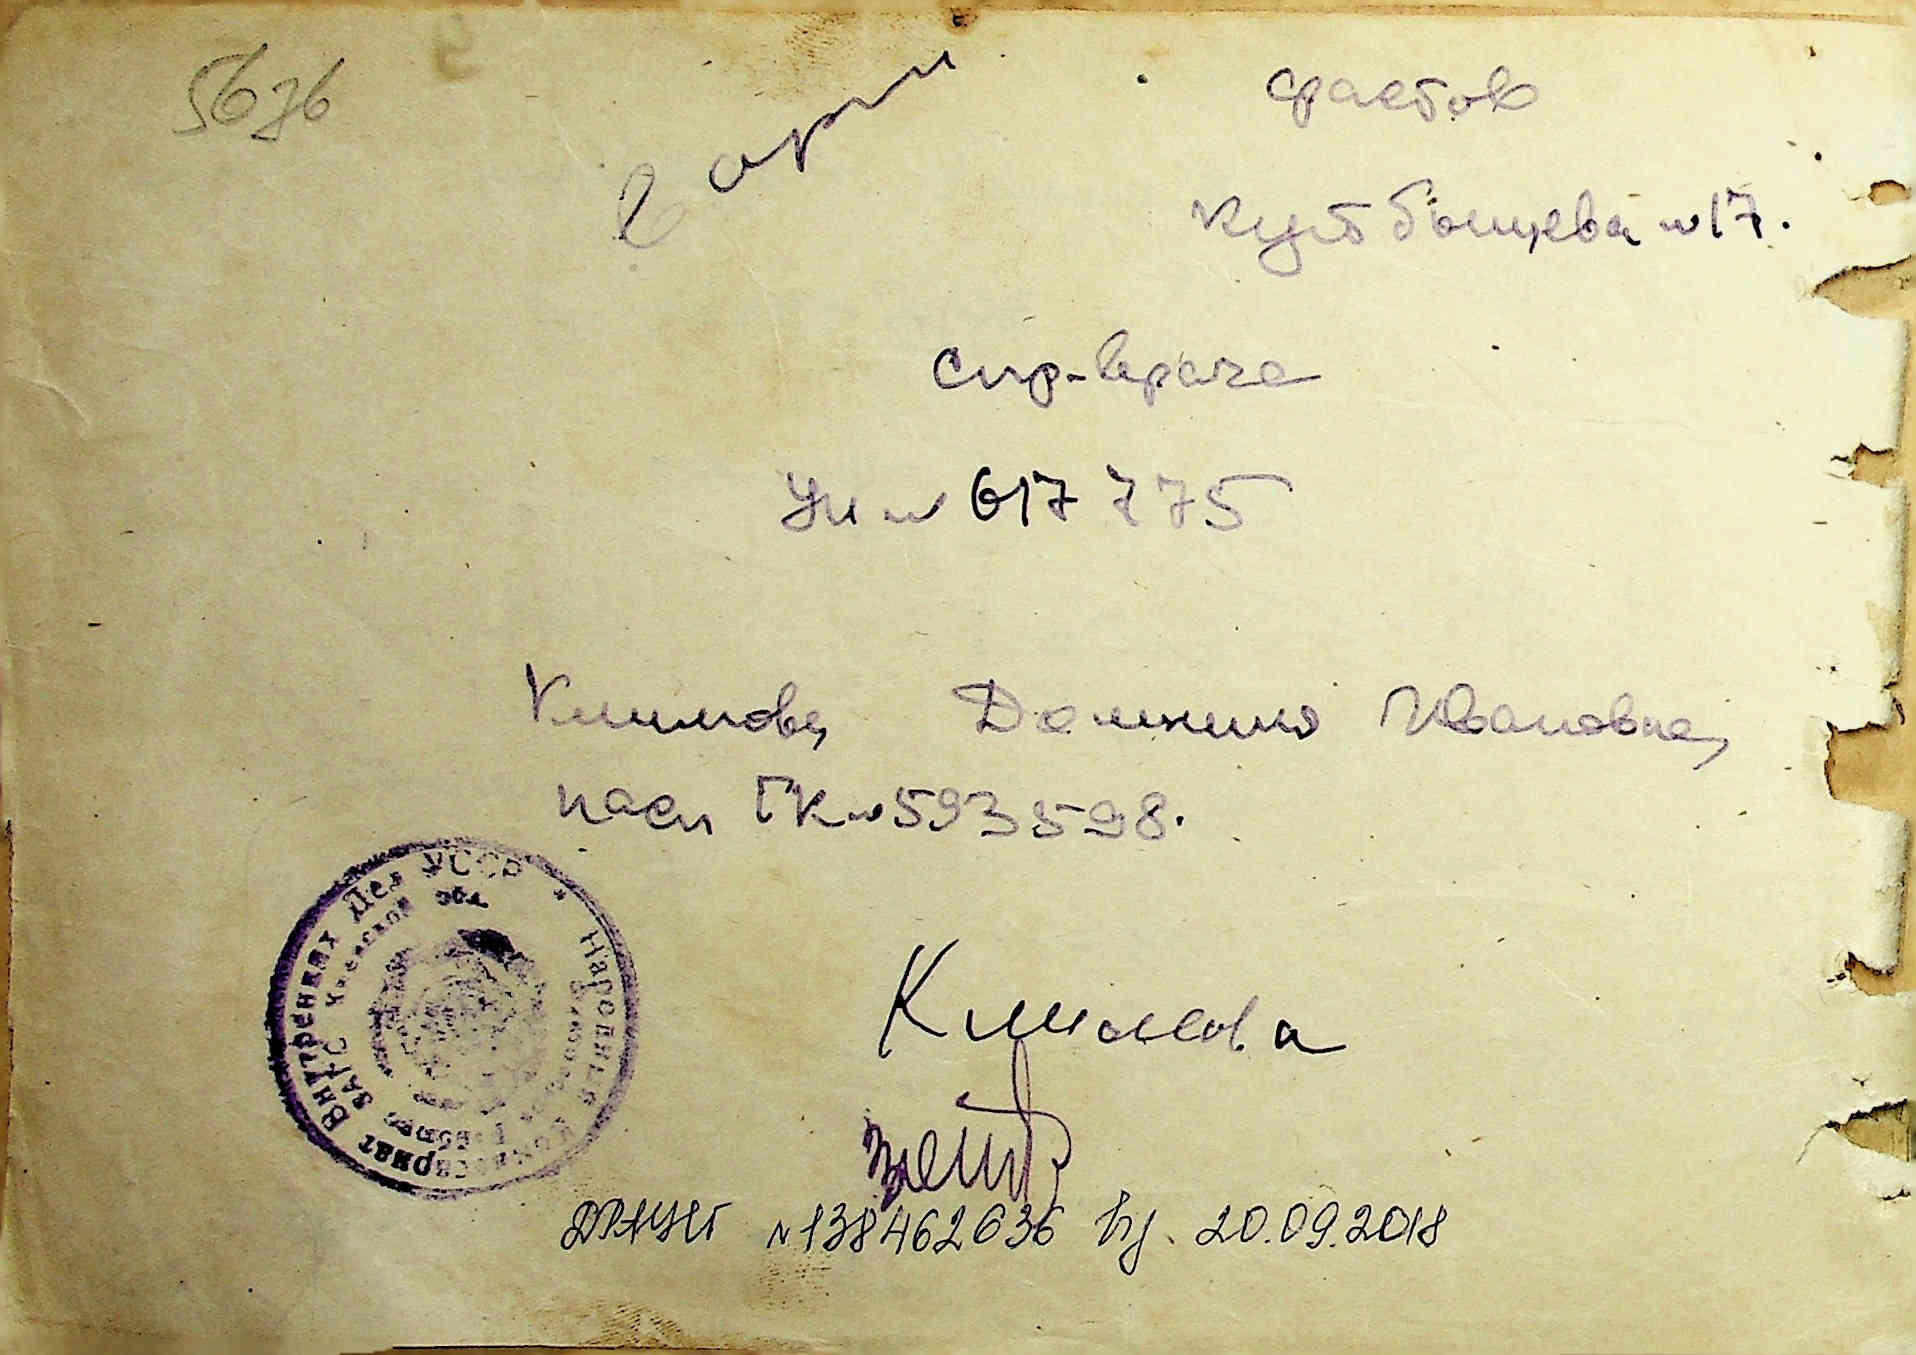 5636
в арми
Фастов
Куйбышева №17.
Спр-врача
УН № 617775
Климова Домнина Ивановна,
пасп ГК №593598.
Народный Комиссариат Внутренних Дел УССР *
ЗАГС Киевской обл.
Климова
ДРАЦСГ №138462636 від 20.09.2018